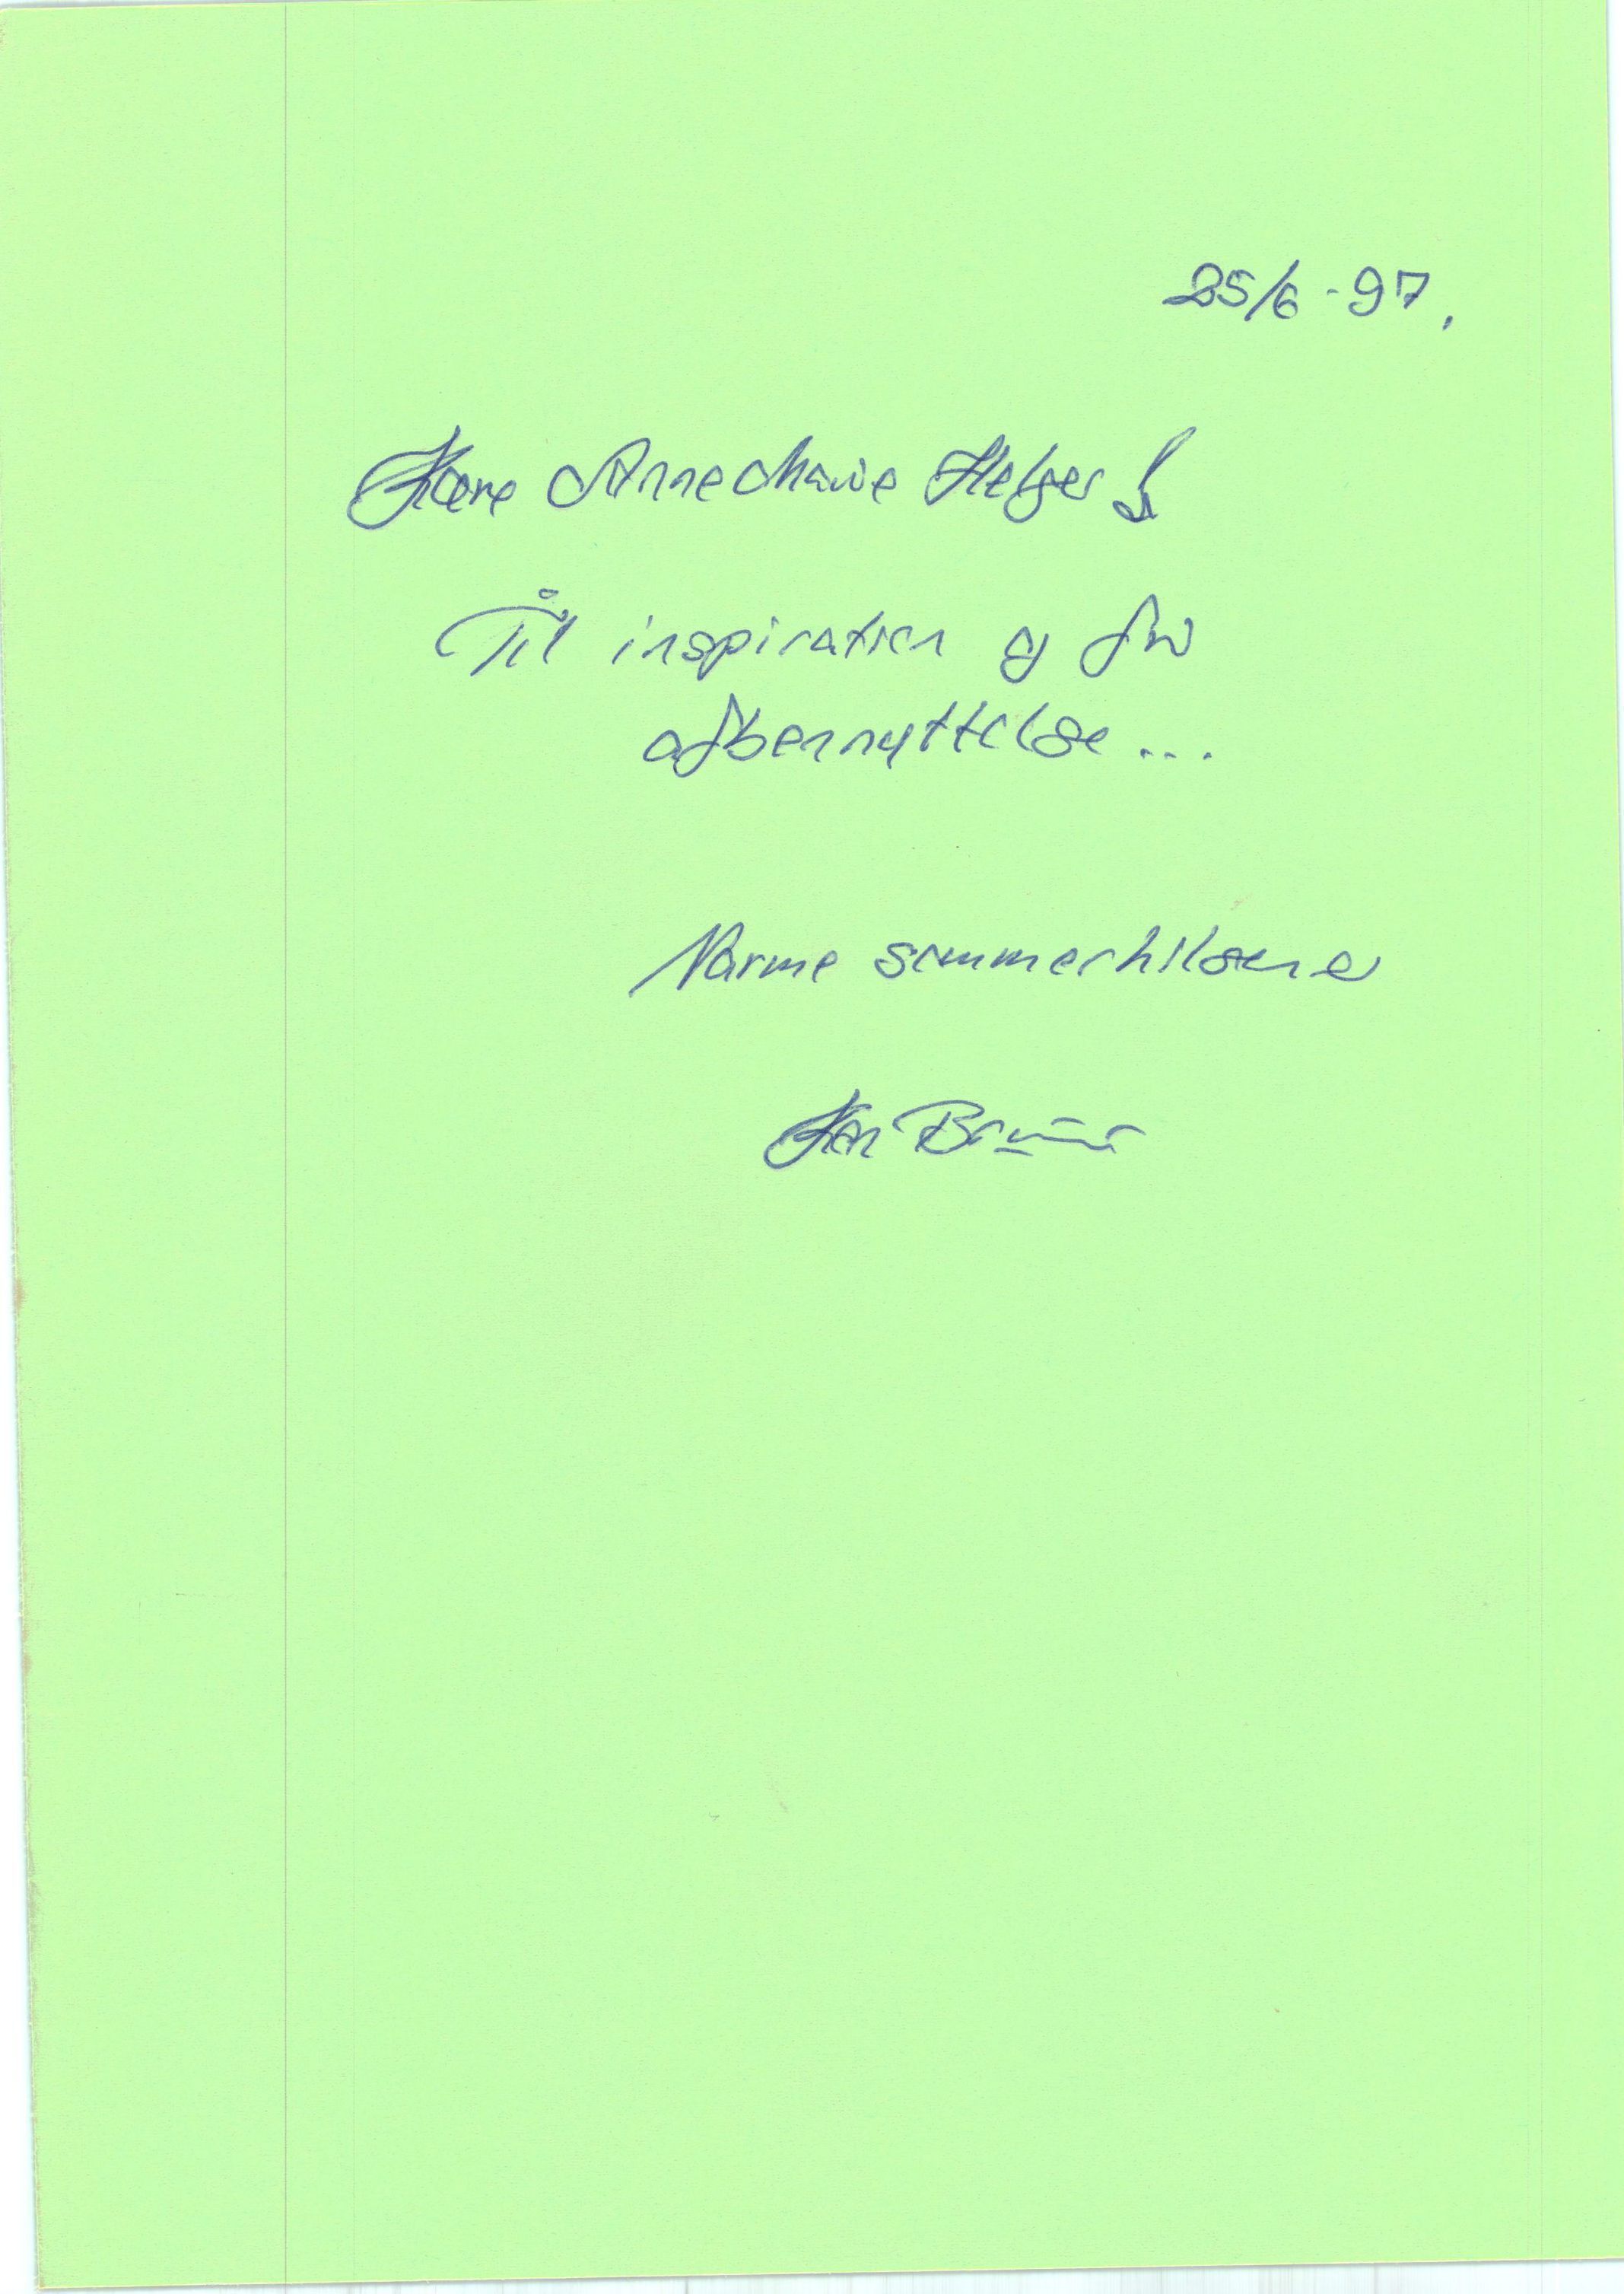 25/6-97.
Kære Anne Marie Helger!
Til inspiration og fri
afbenyttelse...
Varme sommerhilsener